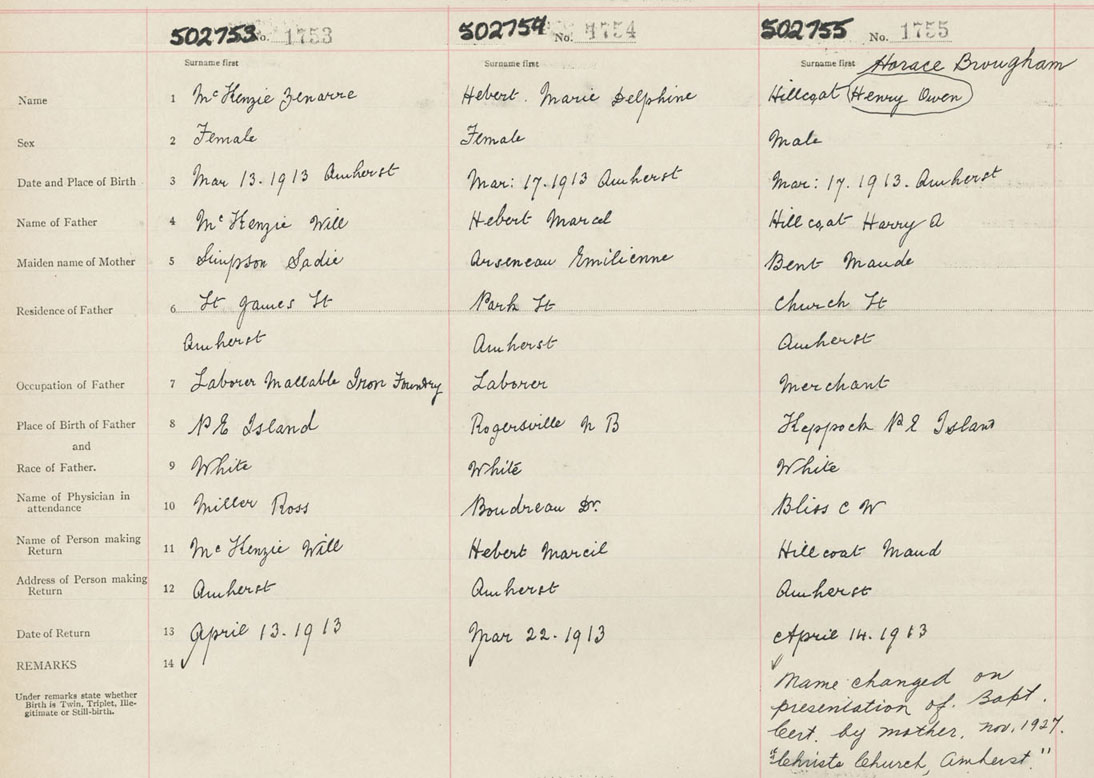 502753 No. 1753 502754 No. 1754 502755 No. 1755
Surname first Surname first Surname first Horace Brougham
Name 1 McKenzie Zenarre Hebert. Marie Delphine Hillcoat Henry Owen
Sex 2 Female Female Male
Date and Place of Birth 3 Mar 13.1913 Amherst Mar: 17.1913 Amherst Mar: 17.1913. Amherst
Name of Father 4 McKenzie Will Hebert Marcel Hillcoat Harry A
Maiden name of Mother 5 Simpson Sadie Arseneau Emilienne Bent Maude
Residence of Father 6 St James St Park St Church St
Amherst Amherst Amherst
Occupation of Father 7 Laborer Mallable Iron Foundry Laborer Merchant
Place of Birth of Father 8 P E Island Rogersville N B Keppoch P E Island
and
Race of Father. 9 White White White
Name of Physician in
attendance 10 Miller Ross Boudreau Dr. Bliss C W
Name of Person making
Return 11 McKenzie Will Hebert Marcil Hillcoat Maud
Address of Person making
Return 12 Amherst Amherst Amherst
Date of Return 13 April 13.1913 Mar 22.1913 April 14.1913
REMARKS 14
Under remarks state whether
Birth is Twin, Triplet, Ille-
gitimate or Still-birth.
Name changed on
presentation of Bapt.
Cert. by mother, Nov, 1927.
"Christ Church, Amherst."